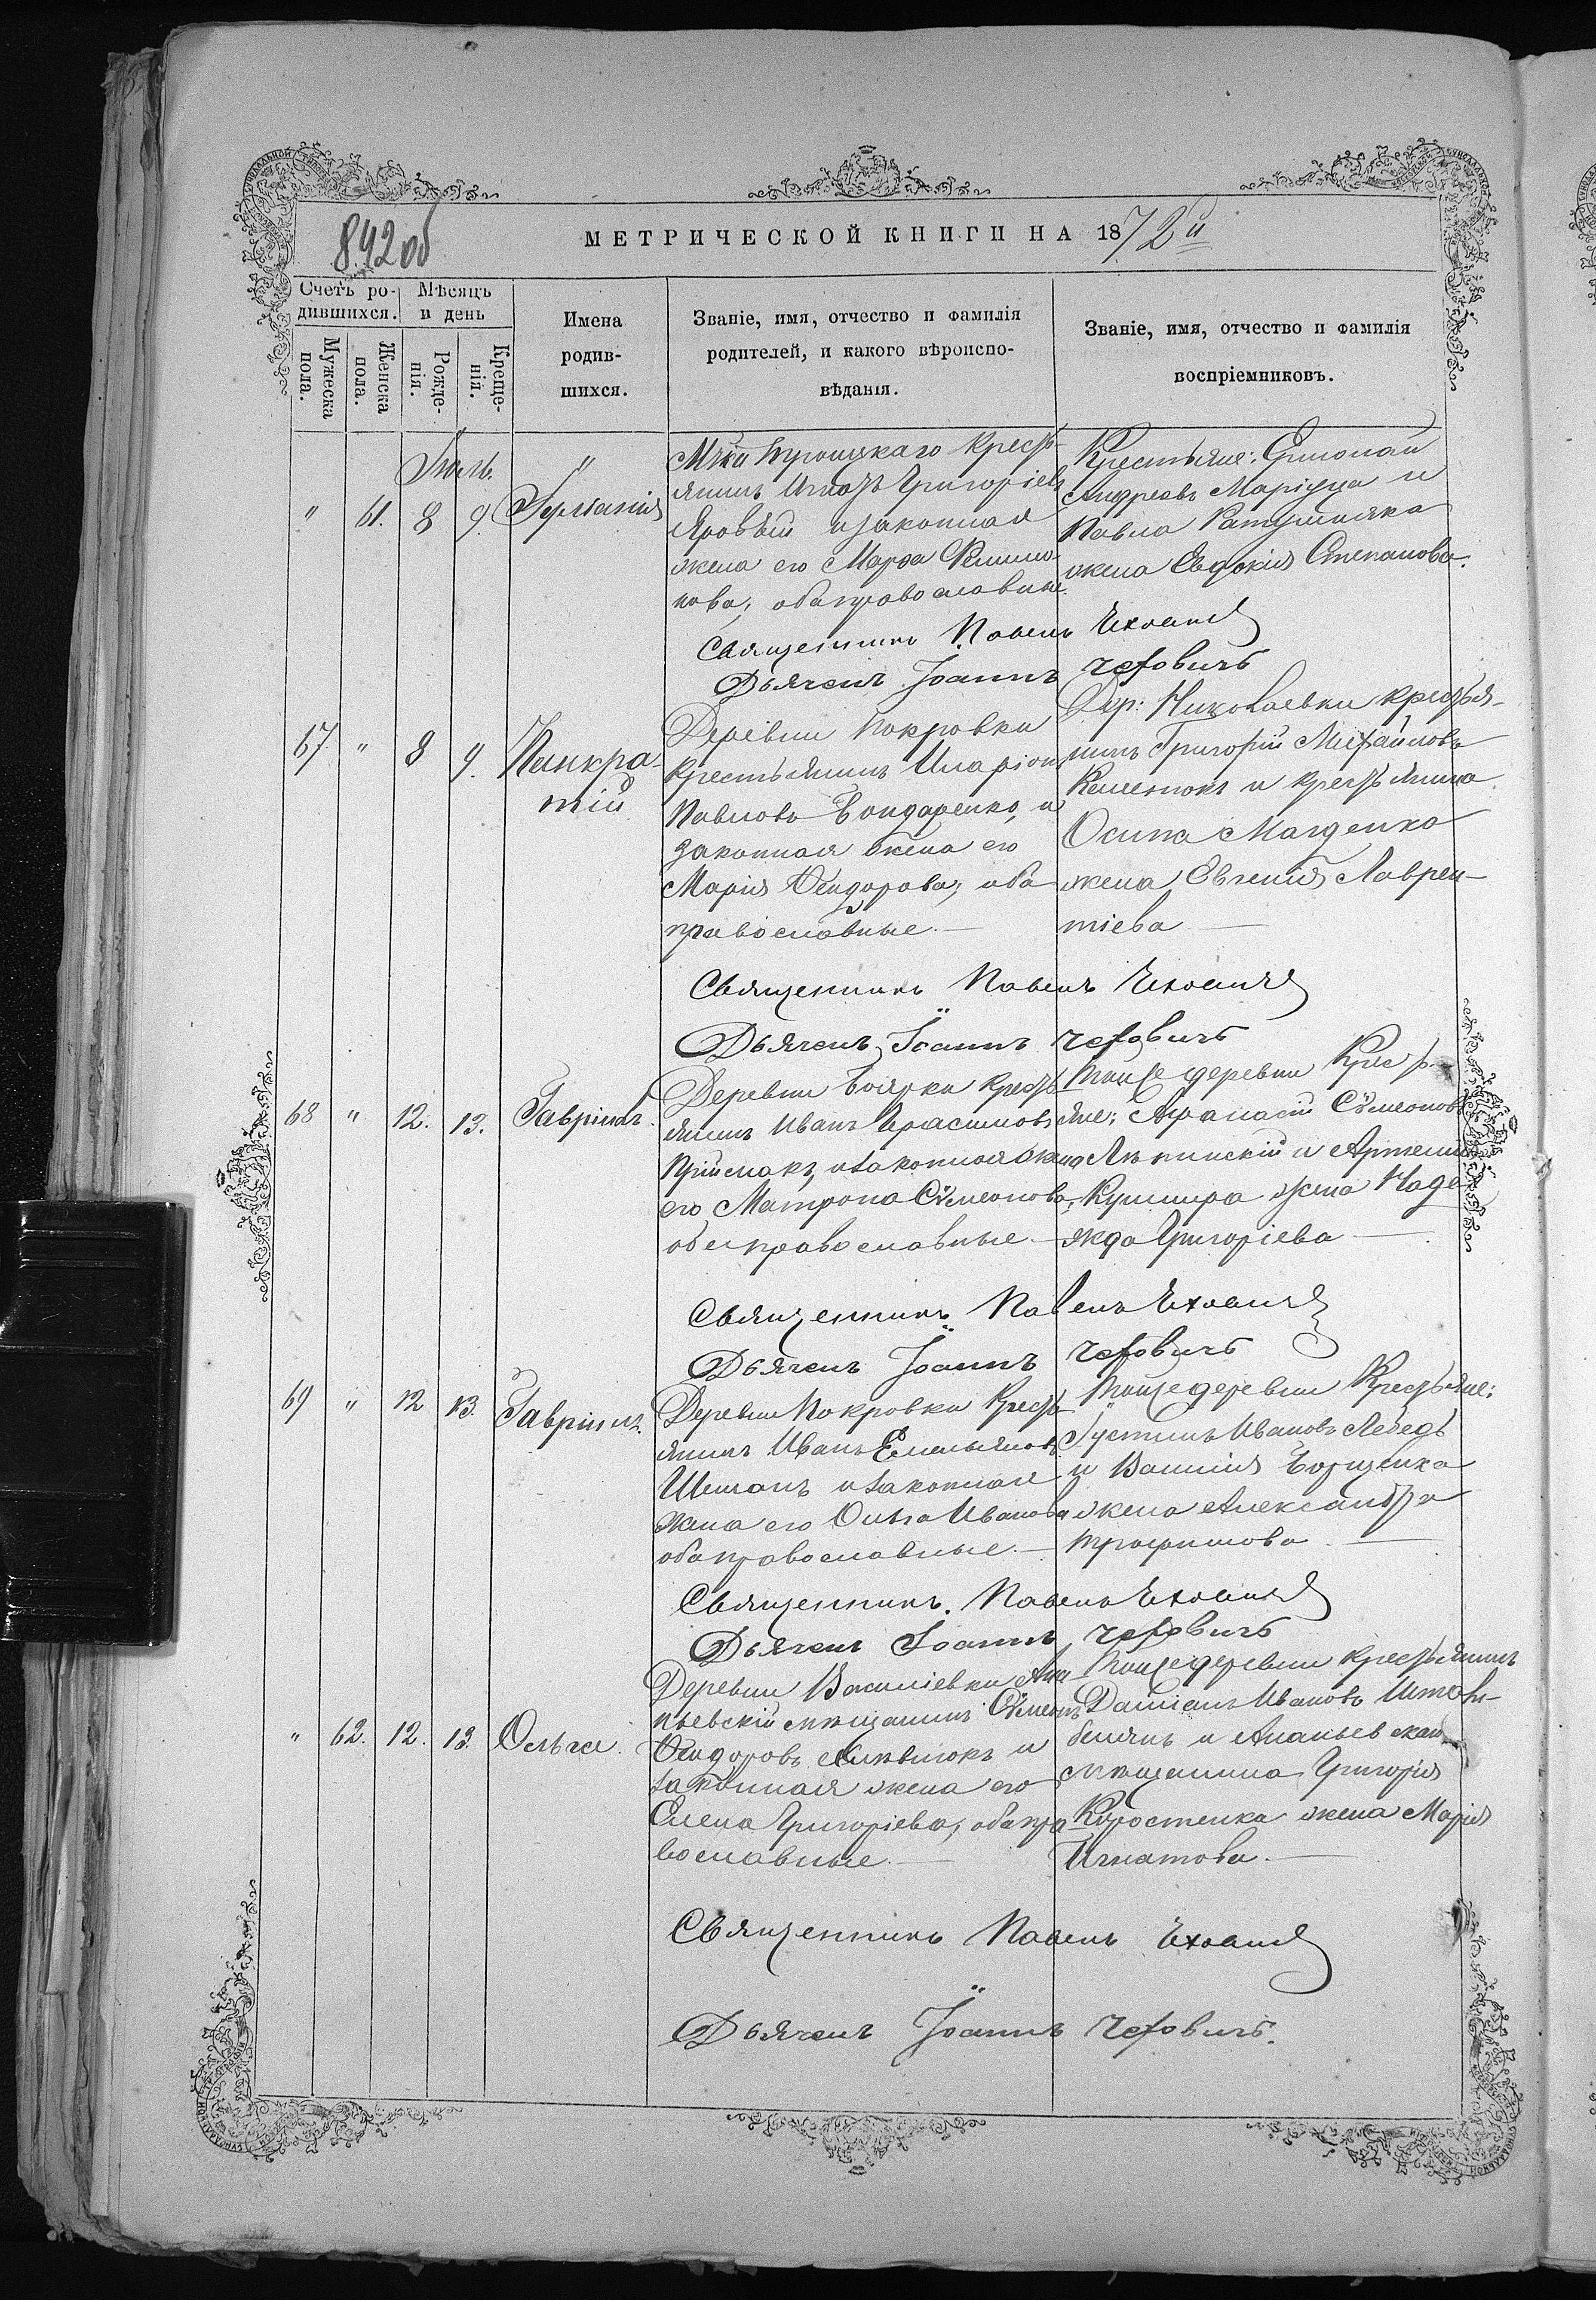 842 об
МЕТРИЧЕСКОЙ КНИГИ НА 1872й
Счетъ ро-
дившихся.
Мѣсяцъ
и день
Мужеска
пола.
Женска
пола.
Рожде-
нія.
Креще-
нія.
Имена
родив-
шихся.
Званіе, имя, отчество и фамилія
родителей, и какого вѣроиспо-
вѣданія.
Званіе, имя, отчество и фамилія
воспріемниковъ.
Іюль.
" 61. 8 9.
Мѣка Троицкаго кресть-
янинъ Игнатъ Григоріевъ
Яровый и законная
жена его Марѳа
нова; оба православные.
Крестьяне:
Андреевъ и
Павла Ратушняка
жена Евдокія Степанова.
Священникъ Павелъ
Дьячекъ Іоаннъ
67. " 8 9.
Панкра-
тій
Деревни Покровки
крестьянинъ Иларіонъ
Павловъ Бондаренко, и
законная жена его
Марія Ѳеодорова; оба
православные.—
Дер: Николаевки кресть-
нинъ Григорій Михайловъ
и крестьянина
Осипа Магденко
жена Евгенія Лаврен-
тіева —
Священникъ Павелъ
Дьячекъ Іоаннъ
68 " 12. 13.
Гавріилъ.
Деревни Боярки кресть-
янинъ Иванъ Герасимовъ
Приймакъ, и законная жена
его Матрона Сѵмеонова,
обе православные.—
Тойже деревни Кресть-
яне; Аѳанасій Сѵмеоновъ
и Артемія
Кушнира жена Наде-
жда Григоріева —
Священникъ Павелъ
Дьячекъ Іоаннъ
69 " 12 13.
Гавріилъ.
Деревни Покровки Кресть-
янинъ Иванъ Емельяновъ
и законная
жена его Ольга Иванова
оба православные.—
Тойже деревни Крестьяне:
Іустинъ Ивановъ Лебедь
и Василія Борщенка
жена Александра
Трофимова. —
Священникъ. Павелъ
Дьячекъ Іоаннъ
" 62. 12. 13.
Ольга.
Деревни Василіевки Ана-
ньевскій мѣщанинъ Сѵмеонъ
Ѳеодоровъ и
законная жена его
Елена Григоріева, оба пра
вославные.—
Тойже деревни крестьянинъ
Даміанъ Ивановъ
и Ананьевскаго
мѣщанина Григорія
Коростенка жена Марія
Игнатова.—
Священникъ Павелъ
Дьячекъ Іоаннъ